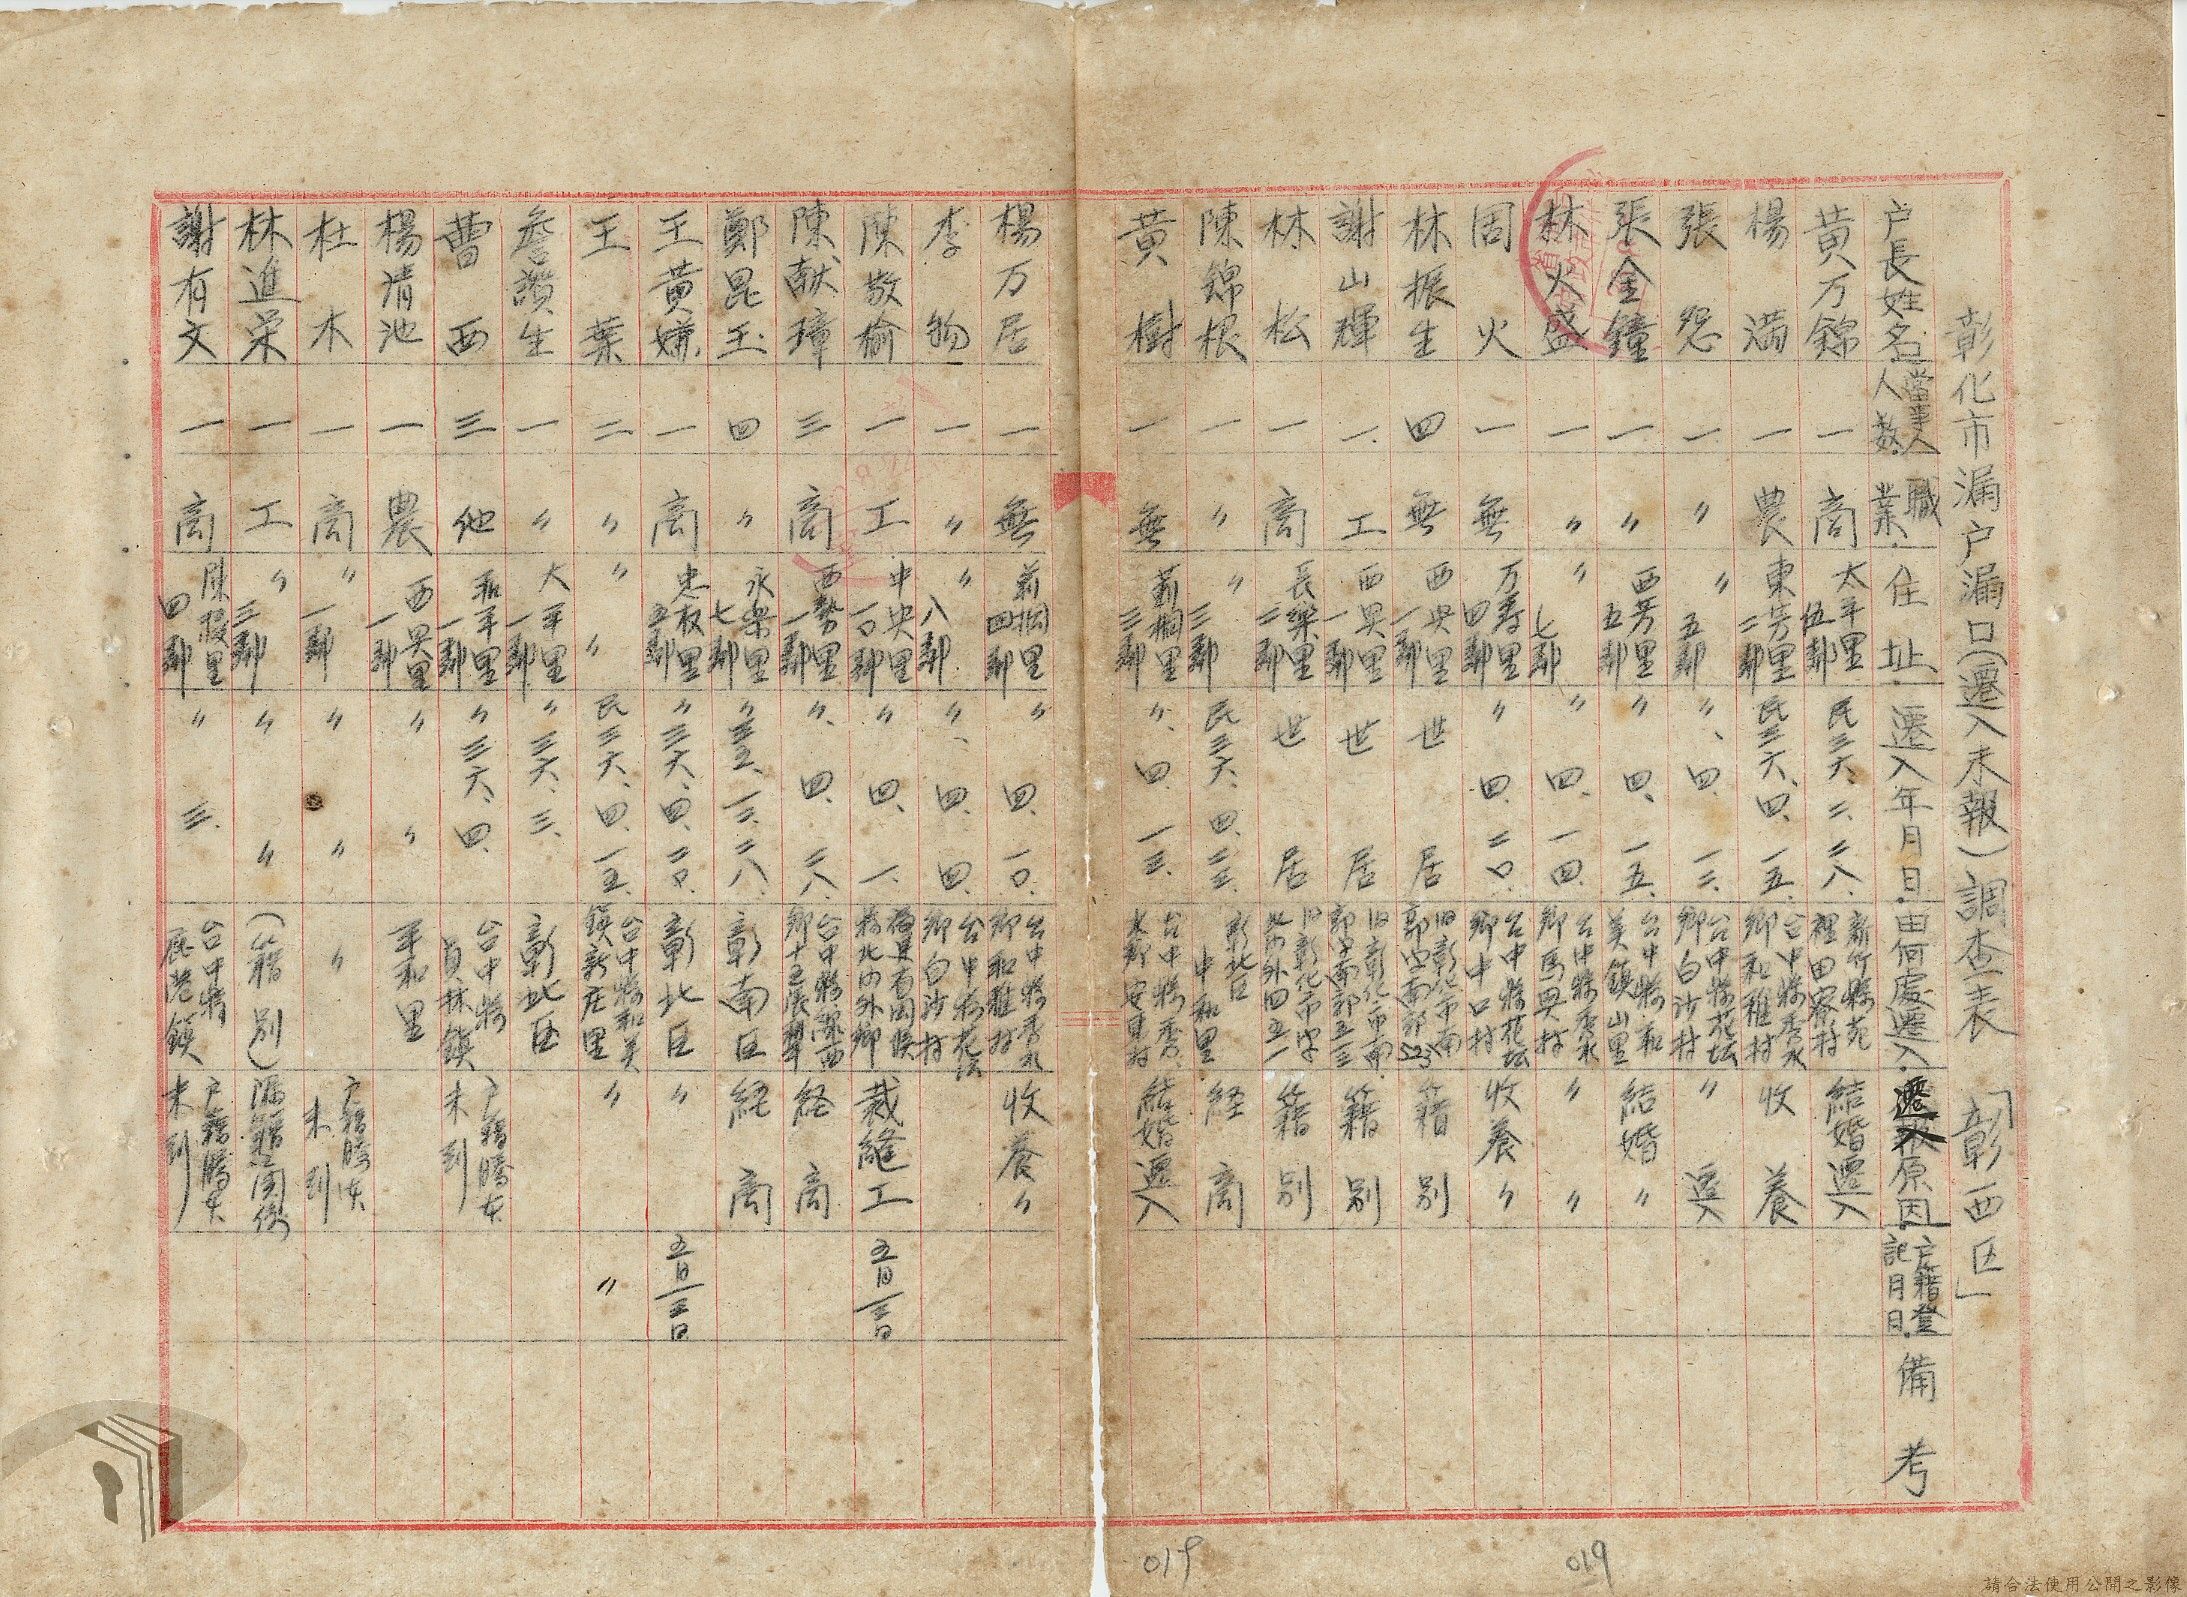 彰化市漏户漏口(遷入未報)調查表 「彰西区」
户長姓名 當事人人数 職業 住址 遷入年月日 由何處遷入 遷入原因 户籍登記月日 備考
黄万錦 一 商 太平里伍鄰 民三六、二、二八、 新竹縣苑裡田寮村 結婚遷入
楊満 一 農 東芳里二鄰 民三六、四、一五、 台中縣秀水鄉和雅村 收養
張怨 一 〃 〃五鄰 〃、四、一三、 台中縣花坛鄉白沙村 〃遷入
張金鐘 一 〃 西芳里五鄰 〃四、一五、 台中縣和美鎮山里 結婚〃
林火盛 一 〃 〃七鄰 〃四、一四、 台中縣秀水鄉馬興村 〃〃
周火 一 無 万寿里四鄰 〃四、二〇、 台中縣花坛鄉中口村 收養〃
林振生 四 無 西興里一鄰 世居 旧彰化市南郭字南郭523 籍別
謝山輝 一 工 西興里一鄰 世居 旧彰化市南郭字南郭五三 籍別
林松 一 商 長樂里二鄰 世居 旧彰化市字北门外四五一 籍別
陳錦根 一 〃 〃三鄰 民三六、四、二三、 彰北区中和里 経商
黄樹 一 無 新桐里三鄰 〃、四、一三、 台中縣秀水鄉安東村 結婚遷入
楊万居 一 無 新桐里四鄰 〃四、一〇、 台中縣秀水鄉和雅村 收養〃
李物 一 〃 〃八鄰 〃、四、四、 台中縣花坛鄉白沙村
陳敬榆 一 工 中央里一〇鄰 〃四、一、 北门外鄉 裁縫工 五月三日
陳献璋 三 商 西勢里一鄰 〃、四、二八、 台中縣 経商
鄭昆玉 四 〃 永樂里七鄰 〃三五、一二、二八、 彰南区 経商
王黄嫌 一 商 忠权里五鄰 〃三六、四、二〇、 彰北区 〃 五月三日
王葉 二 〃 〃〃 民三六、四、一五、 台中縣和美鎮新庄里 〃 〃
詹讚生 一 〃 大平里一鄰 〃三六、三、 彰北区
曹西 三 他 和平里一鄰 〃三六、四、 台中縣員林鎮 户籍謄本未到
楊清池 一 農 西興里一鄰 〃〃 平和里
杜木 一 商 〃一鄰 〃〃 〃 户籍謄本未到
林進栄 一 工 〃三鄰 〃〃 (籍別)
謝有文 一 商 陳陵里四鄰 〃三、 台中縣鹿港鎮 户籍謄本未到
019
019
請合法使用公開之影像